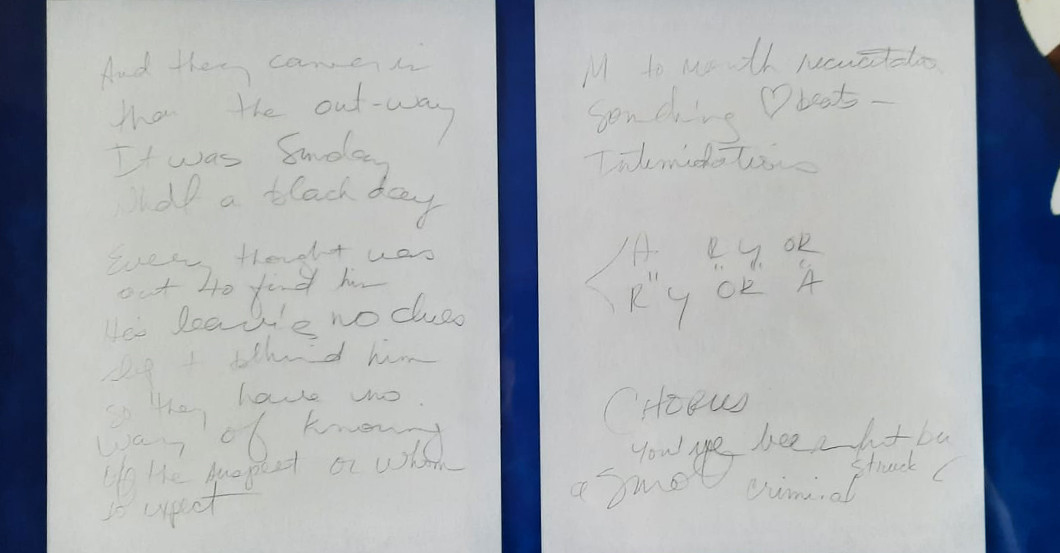 And they came in
thro the out-way
It was Sunday
What a black day
Every thought was
out to find him
He's leavi'g no clues
left behind him
so they have no
way of knowing
of the suspect or whom
to expect
M to mouth
Sounding ♡ beats –
Intimidations
A R Y OR
R Y OR A
CHORUS
You've been hit by
struck
a Smoo
criminal